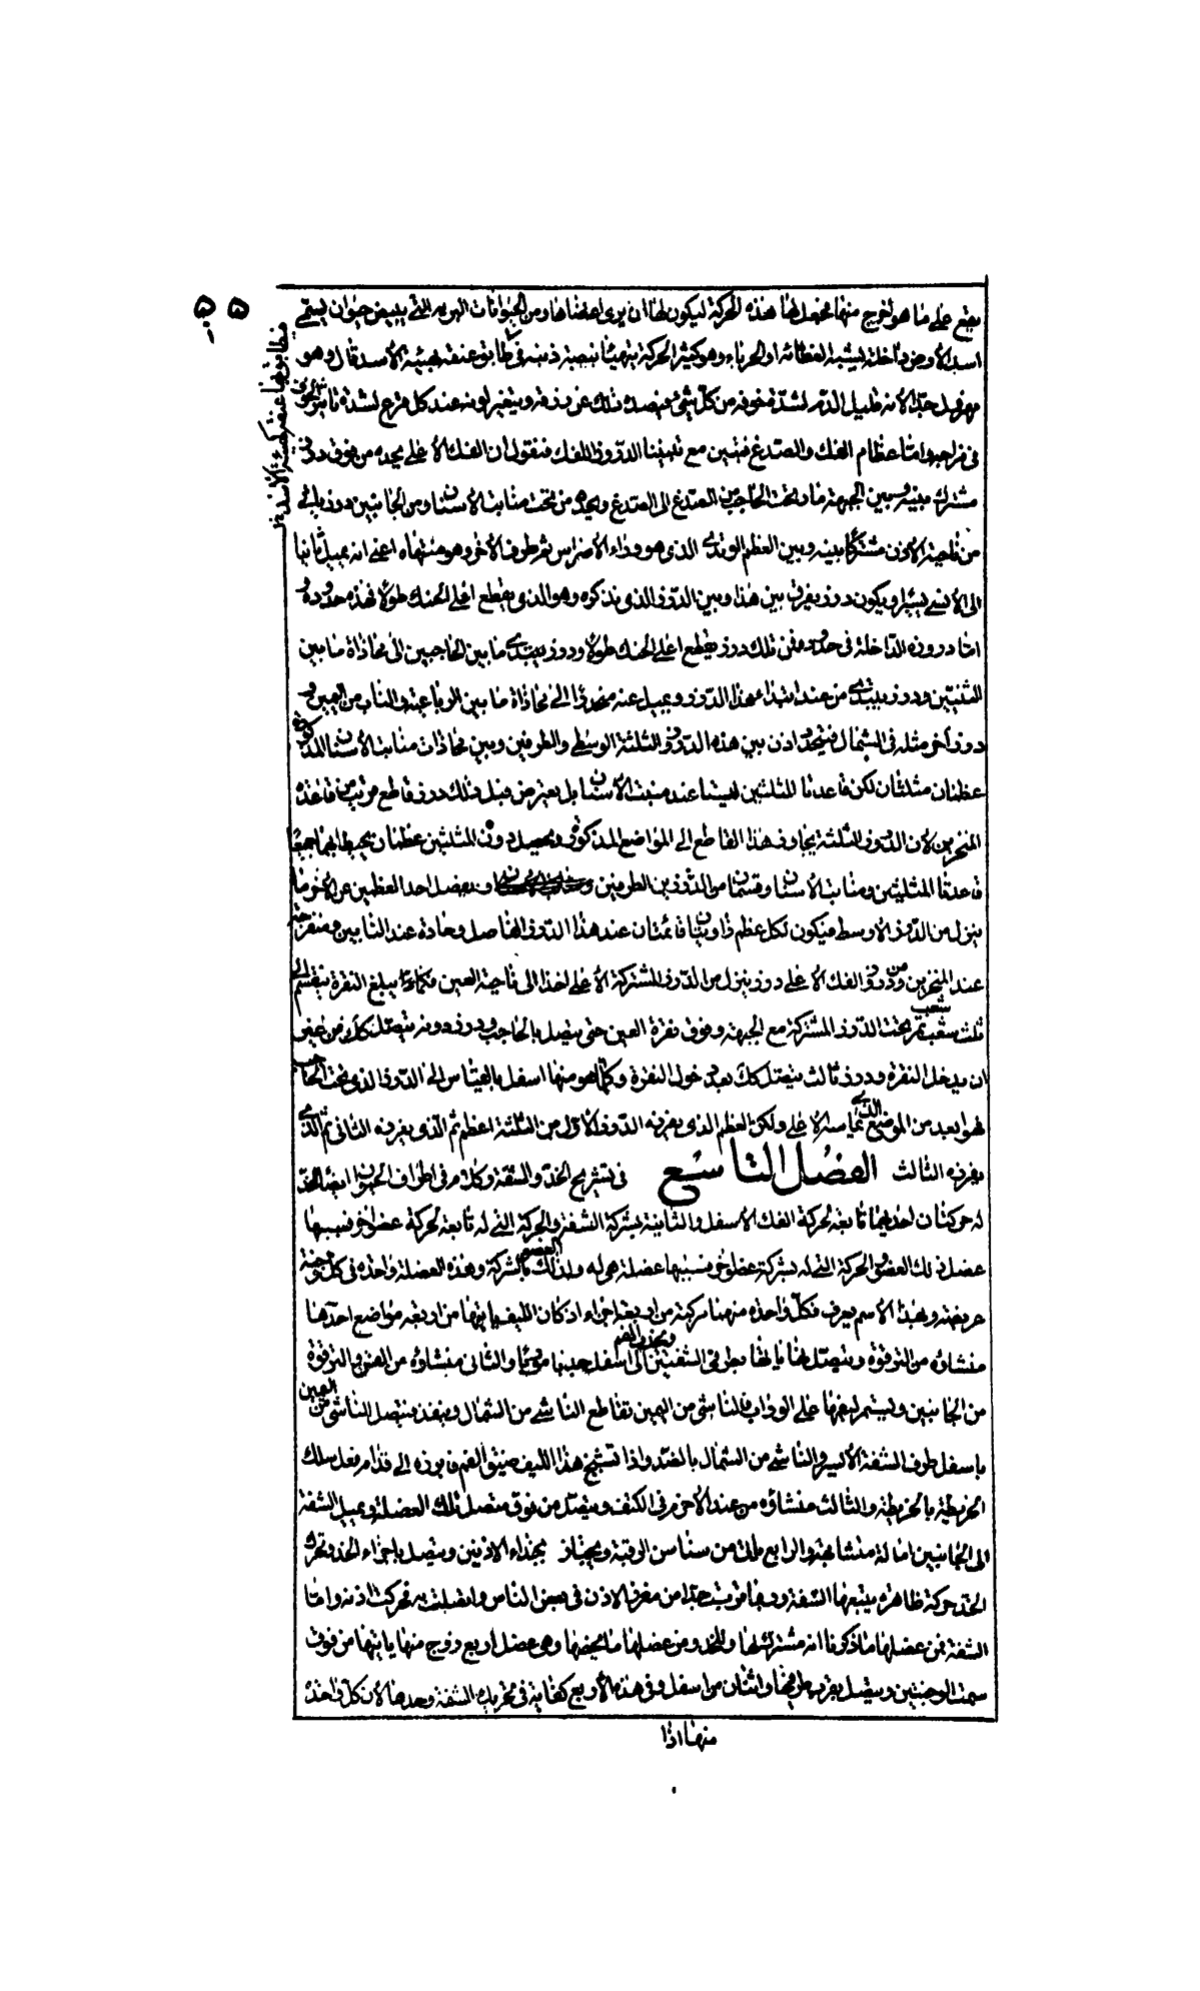 يقع على ما هو لفرج منها فجعل لها هذه الحركة ليكون لها ان يرى اعضاءها ومن الحيوانات البرية التي بيض حيوان يسمى
اسد الارض داخلته يشبه العظائه او الحرباء وهو كثير الحركة يتهيأ نصبة ذنبه في طابق عنقه كهيئة الاسد قال وهو
مهزول جدا لانه قليل الدم لشدة خوفه من كل شيء فيصده ذلك عن رزقه ويتغير لونه عند كل فزع لشدة تأثير الخوف
في مزاجه واما عظام الفك والصدغ فتبين مع تبييننا الدروز للفك فنقول ان الفك الاعلى يحده من فوق درز
مشترك بينه وبين الجبهة مار تحت الحاجب من الصدغ الى الصدغ ويحده من تحت منابت الاسنان ومن الجانبين درز ياتي
من ناحية الاذن مشتركا بينه وبين العظم الوتدي الذي هو وراء الاضراس ثم طرف الاخر وهو منتهاه اعنى انه يميل ثانيا
الى الانسي يسيرا ويكون درز يفرق بين هذا وبين الدرز الذي نذكره وهو الذي يقطع اعلى الحنك طولا فهذه حدوده و
اما دروزه الداخلة في حدوده فمن تلك درز يقطع اعلى الحنك طولا ودرز يبتدى ما بين الحاجبين الى محاذاة ما بين
الثنيتين ودرز يبتدى من عند ابتداء هذا الدرز ويميل عنه منحدرا الى محاذاة ما بين الرباعية والناب من اليمين و
درز آخر مثله في الشمال فيتحدد اذن بين هذه الدروز الثلثة الوسطى والطرفين وبين محاذات منابت الاسنان المذكورة
عظمان مثلثان لكن قاعدتا المثلثين ليستا عند منبت الاسنان بل يعترض قبل ذلك درز قاطع قريب من قاعدة
المنخرين لان الدروز الثلثة يجاوز هذا القاطع الى المواضع المذكورة ويحصل دون المثلثين عظمان يحيط بهما جميعا
قاعدتا المثلثين ومنابت الاسنان وقسمان من الدرزين الطرفين ويفصل احد العظمين عن الاخر ما
ينزل من الدرز الاوسط فيكون لكل عظم زاويتان قائمتان عند هذا الدرز الفاصل وحادة عند النابين ومنفرجة
عند المنخرين ومن دروز الفك الاعلى درز ينزل من الدرز المشتركة الاعلى اخذا الى ناحية العين فكما يبلغ النقرة ينقسم الى
شعب
ثلث شعب تمر تحت الدرز المشتركة مع الجبهة وفوق نقرة العين حتى يتصل بالحاجب ودرز دونه يتصل كذلك من غير
ان يدخل النقرة ودرز ثالث يتصل كك بعد دخول النقرة وكلما هو منها اسفل بالقياس الى الدرز الذي تحت الحاجب
فهو ابعد من الموضع الذي يماسه الاعلى ولكن العظم الذي يفرزه الدرز الاول من الثلثة اعظم ثم الذي يفرزه الثانى ثم الذي
يفرزه الثالث الفصل التاسع في تشريح الخد والشفة وكلام في اطراف الحيوان ايضا الخد
له حركتان احديهما تابعة لحركة الفك الاسفل والثانية بشركة الشفة والحركة التي له تابعة لحركة عضو آخر فسببها
عضل ذلك العضو والحركة التي له بشركة عضو آخر فسببها عضلة هي له ولذلك العضو بالشركة وهذه العضلة واحدة في كل وجنة
عريضة وبهذا الاسم يعرف فكل واحدة منهما مركبة من اربعة اجزاء اذ كان الليف ياتيها من اربعة مواضع احدها
ويجذب الفم
منشاؤه من الترقوة ويتصل نهاياتها بطرفي الشفتين الى اسفل جذبا موربا والثانى منشاؤه من القس والترقوة
من الجانبين ويستمر ليفها على الوراب فالناشي من اليمين تقاطع الناشي من الشمال وينفذ فيتصل الناشي من اليمين
باسفل طرف الشفة الايسر والناشي من الشمال بالضد واذا تشنج هذا الليف ضيق الفم فابرزه الى قدام فعل سلك
الخريطة بالخريطة والثالث منشاؤه من عند الاخرم في الكتف ويتصل من فوق متصل تلك العضلة ويميل الشفة
الى الجانبين امالة متشابهة والرابع ياتى من سناسن الرقبة ويجتاز بحذاء الاذنين ويتصل باجزاء الخد ويحرك
الخد حركة ظاهرة يتبعها الشفة وربما قربت جدا من مغرز الاذن في بعض الناس واتصلت به فحركت اذنه واما
الشفة فمن عضلها ما ذكرنا انه مشترك لها وللخد ومن عضلها ما يخصها وهي عضل اربع زوج منها ياتيها من فوق
سمت الوجنتين ويتصل بقرب طرفيها واثنان من اسفل وفي هذه الاربع كفاية في تحريك الشفة وحدها لان كل واحدة
منها اذا